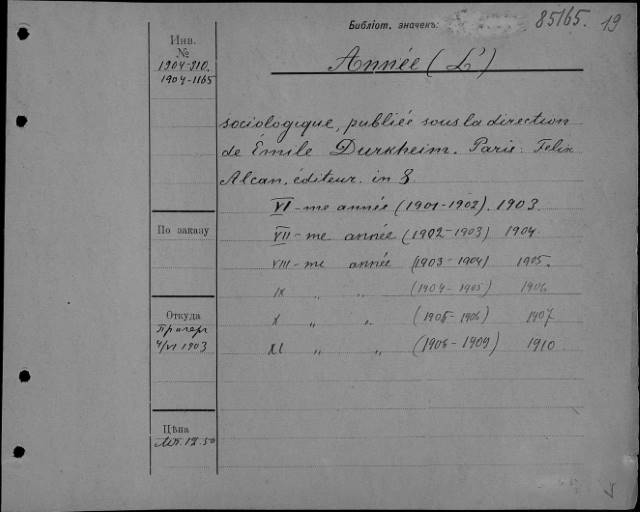 Библіот. значекъ: 85165. 19
Инв.
№
1904-210.
1904-1165
Année (L')
sociologique, publiée sous la direction
de Émile Durkheim. Paris: Felix
Alcan, éditeur. in 8.
VI-me année (1901-1902). 1903.
VII-me année (1902-1903) 1904.
По заказу
VIII-me année (1903-1904) 1905.
IX " " (1904-1905) 1906
Откуда
X " " (1905-1906) 1907
4/VI 1903
XI " " (1906-1909) 1910
Цѣна
12.50